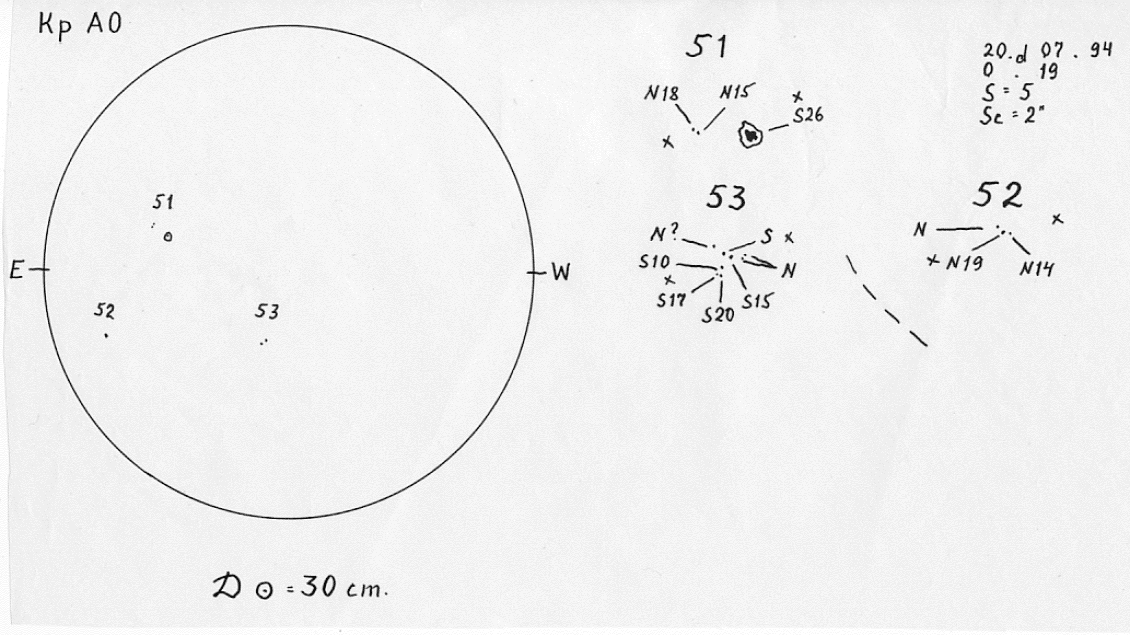 Кр АО
51
20.d 07. 94
0 . 19
S = 5
Sc = 2"
N18
N15
x
S26
x
51
53
52
N?
S x
N
x
S10
N
x N19
N14
x
S17
S20
S15
E
W
52
53
D ⊙ = 30 cm.